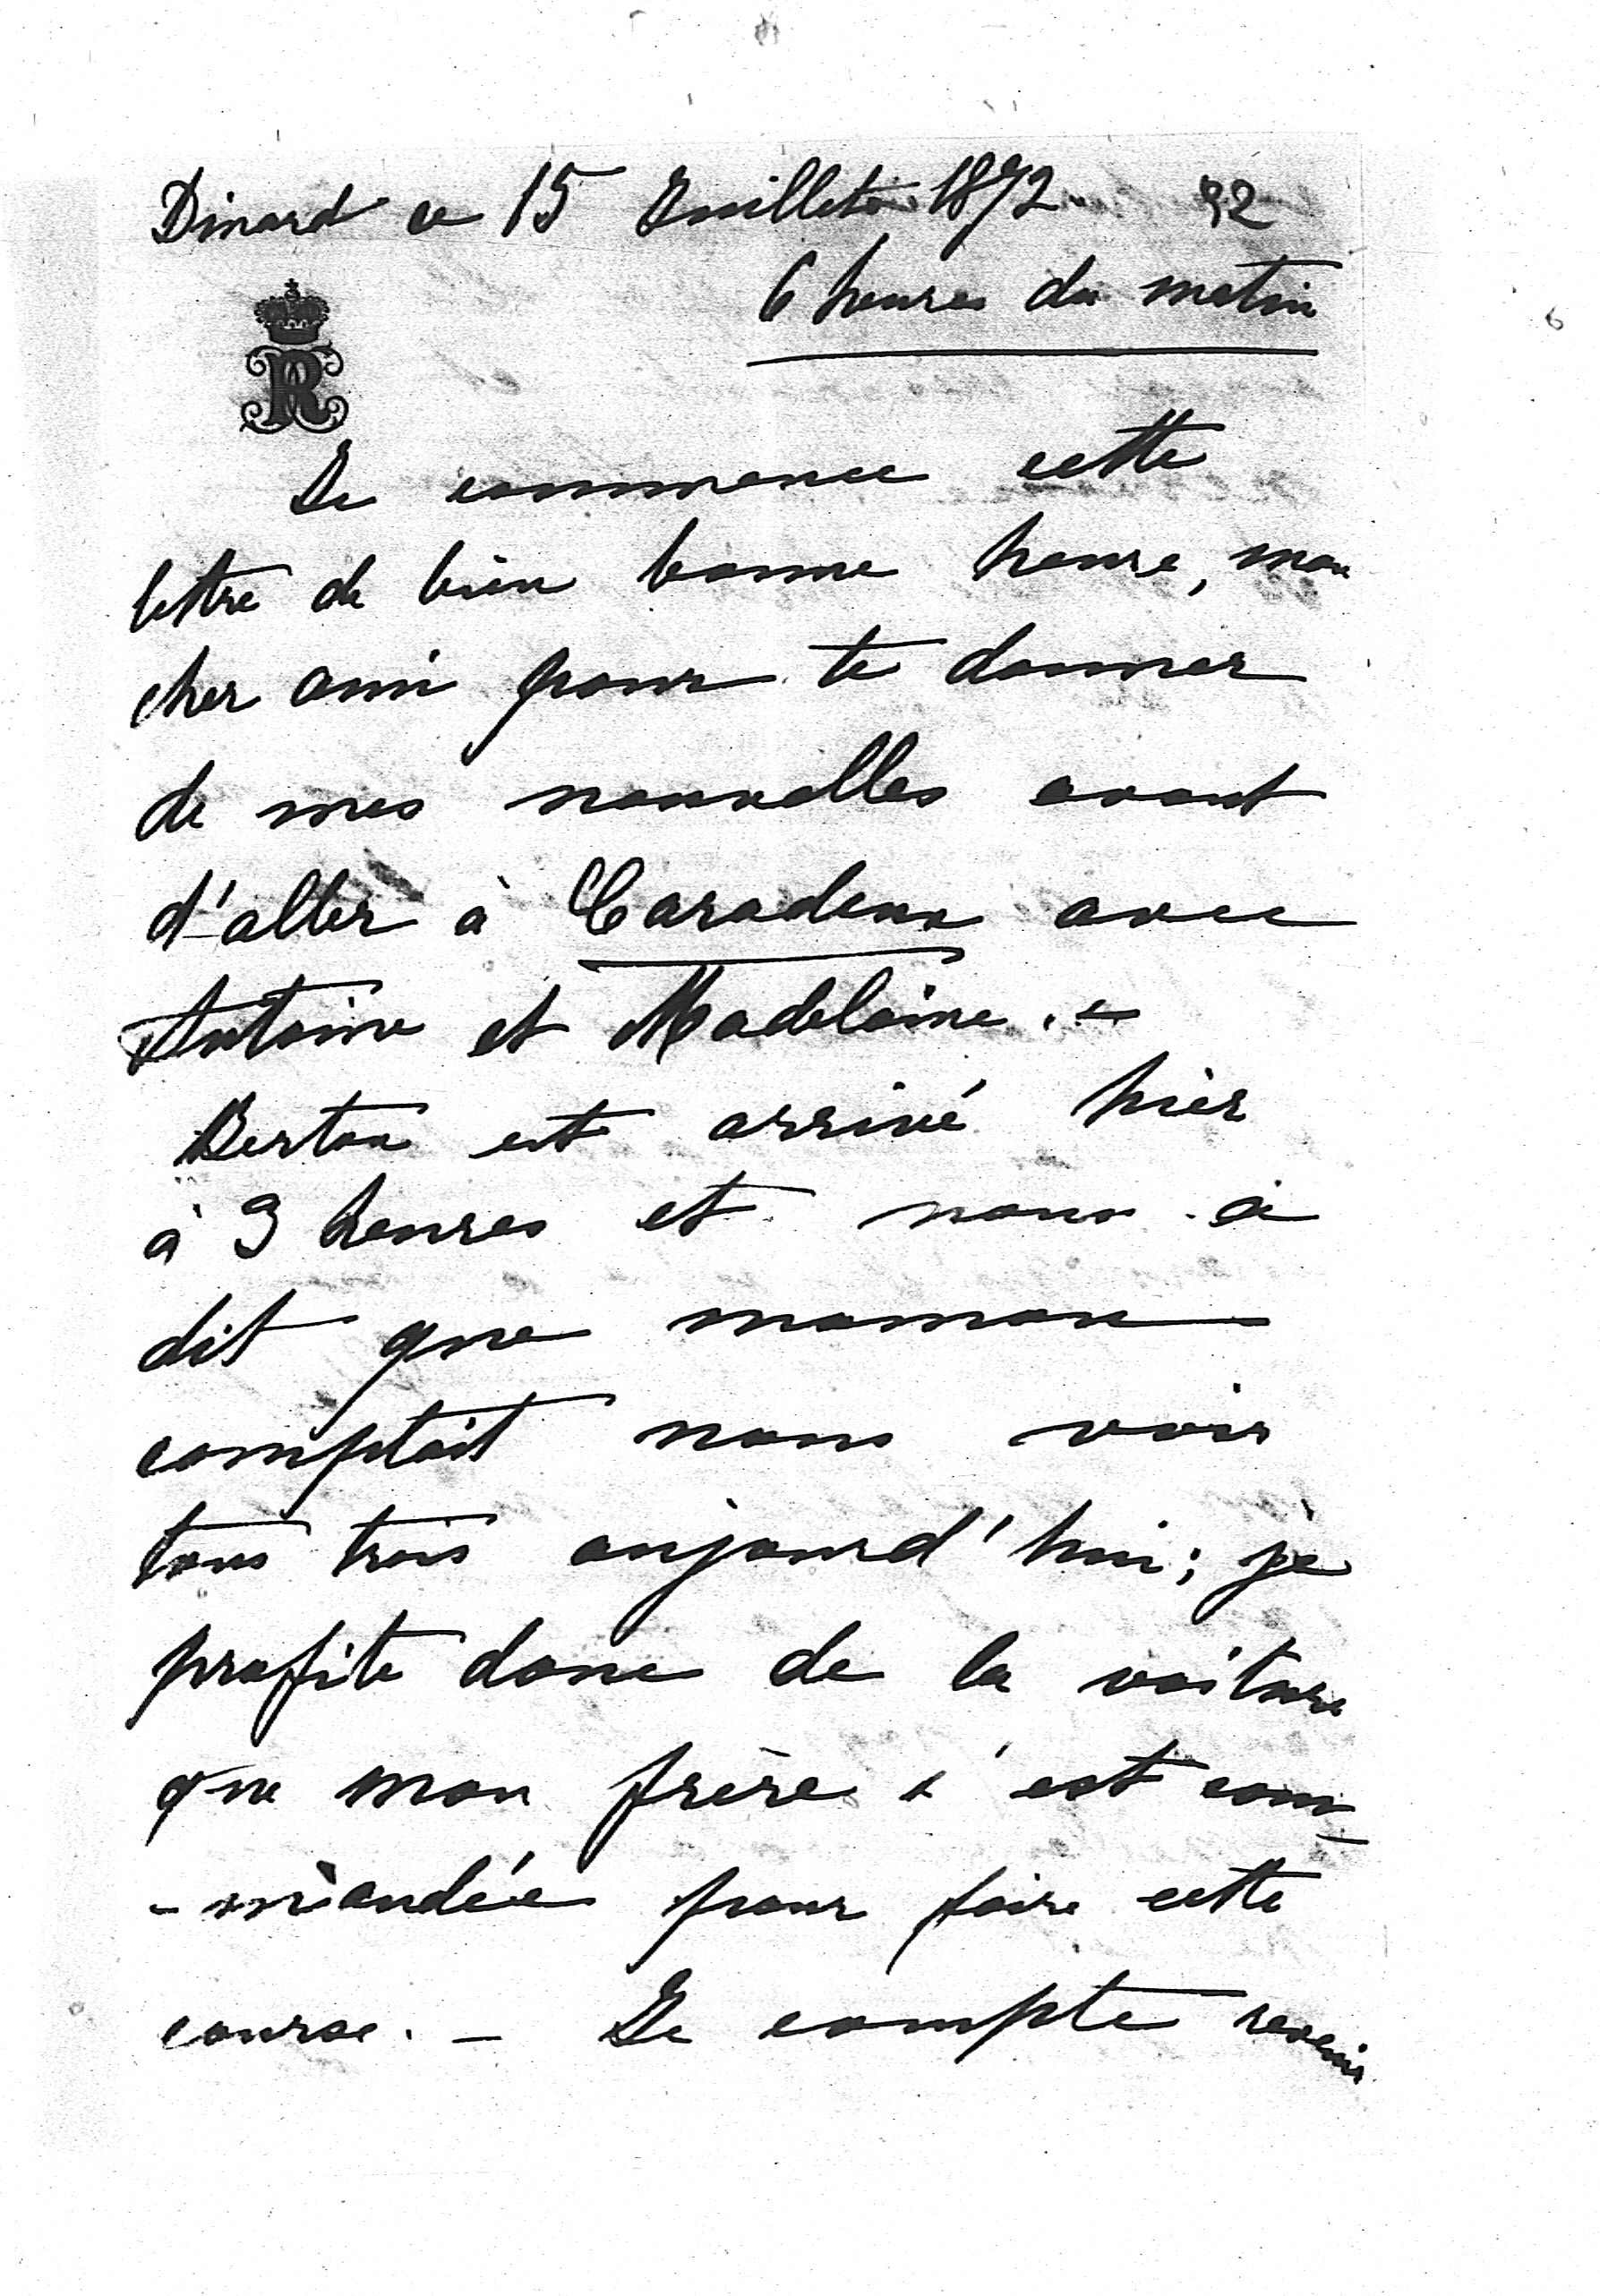 Dinard ce 15 Juillet 1872 92
6 heures du matin
R
Je commence cette
lettre de bien bonne heure, mon
cher ami pour te donner
de mes nouvelles avant
d'aller à Caradeux avec
Antoine et Madelaine. -
Berton est arrivé hier
à 3 heures et nous a
dit que maman
comptait nous voir
tous trois aujourd'hui; je
profite donc de la voiture
que mon frère s'est com-
-mandée pour faire cette
course. - Je compte revenir